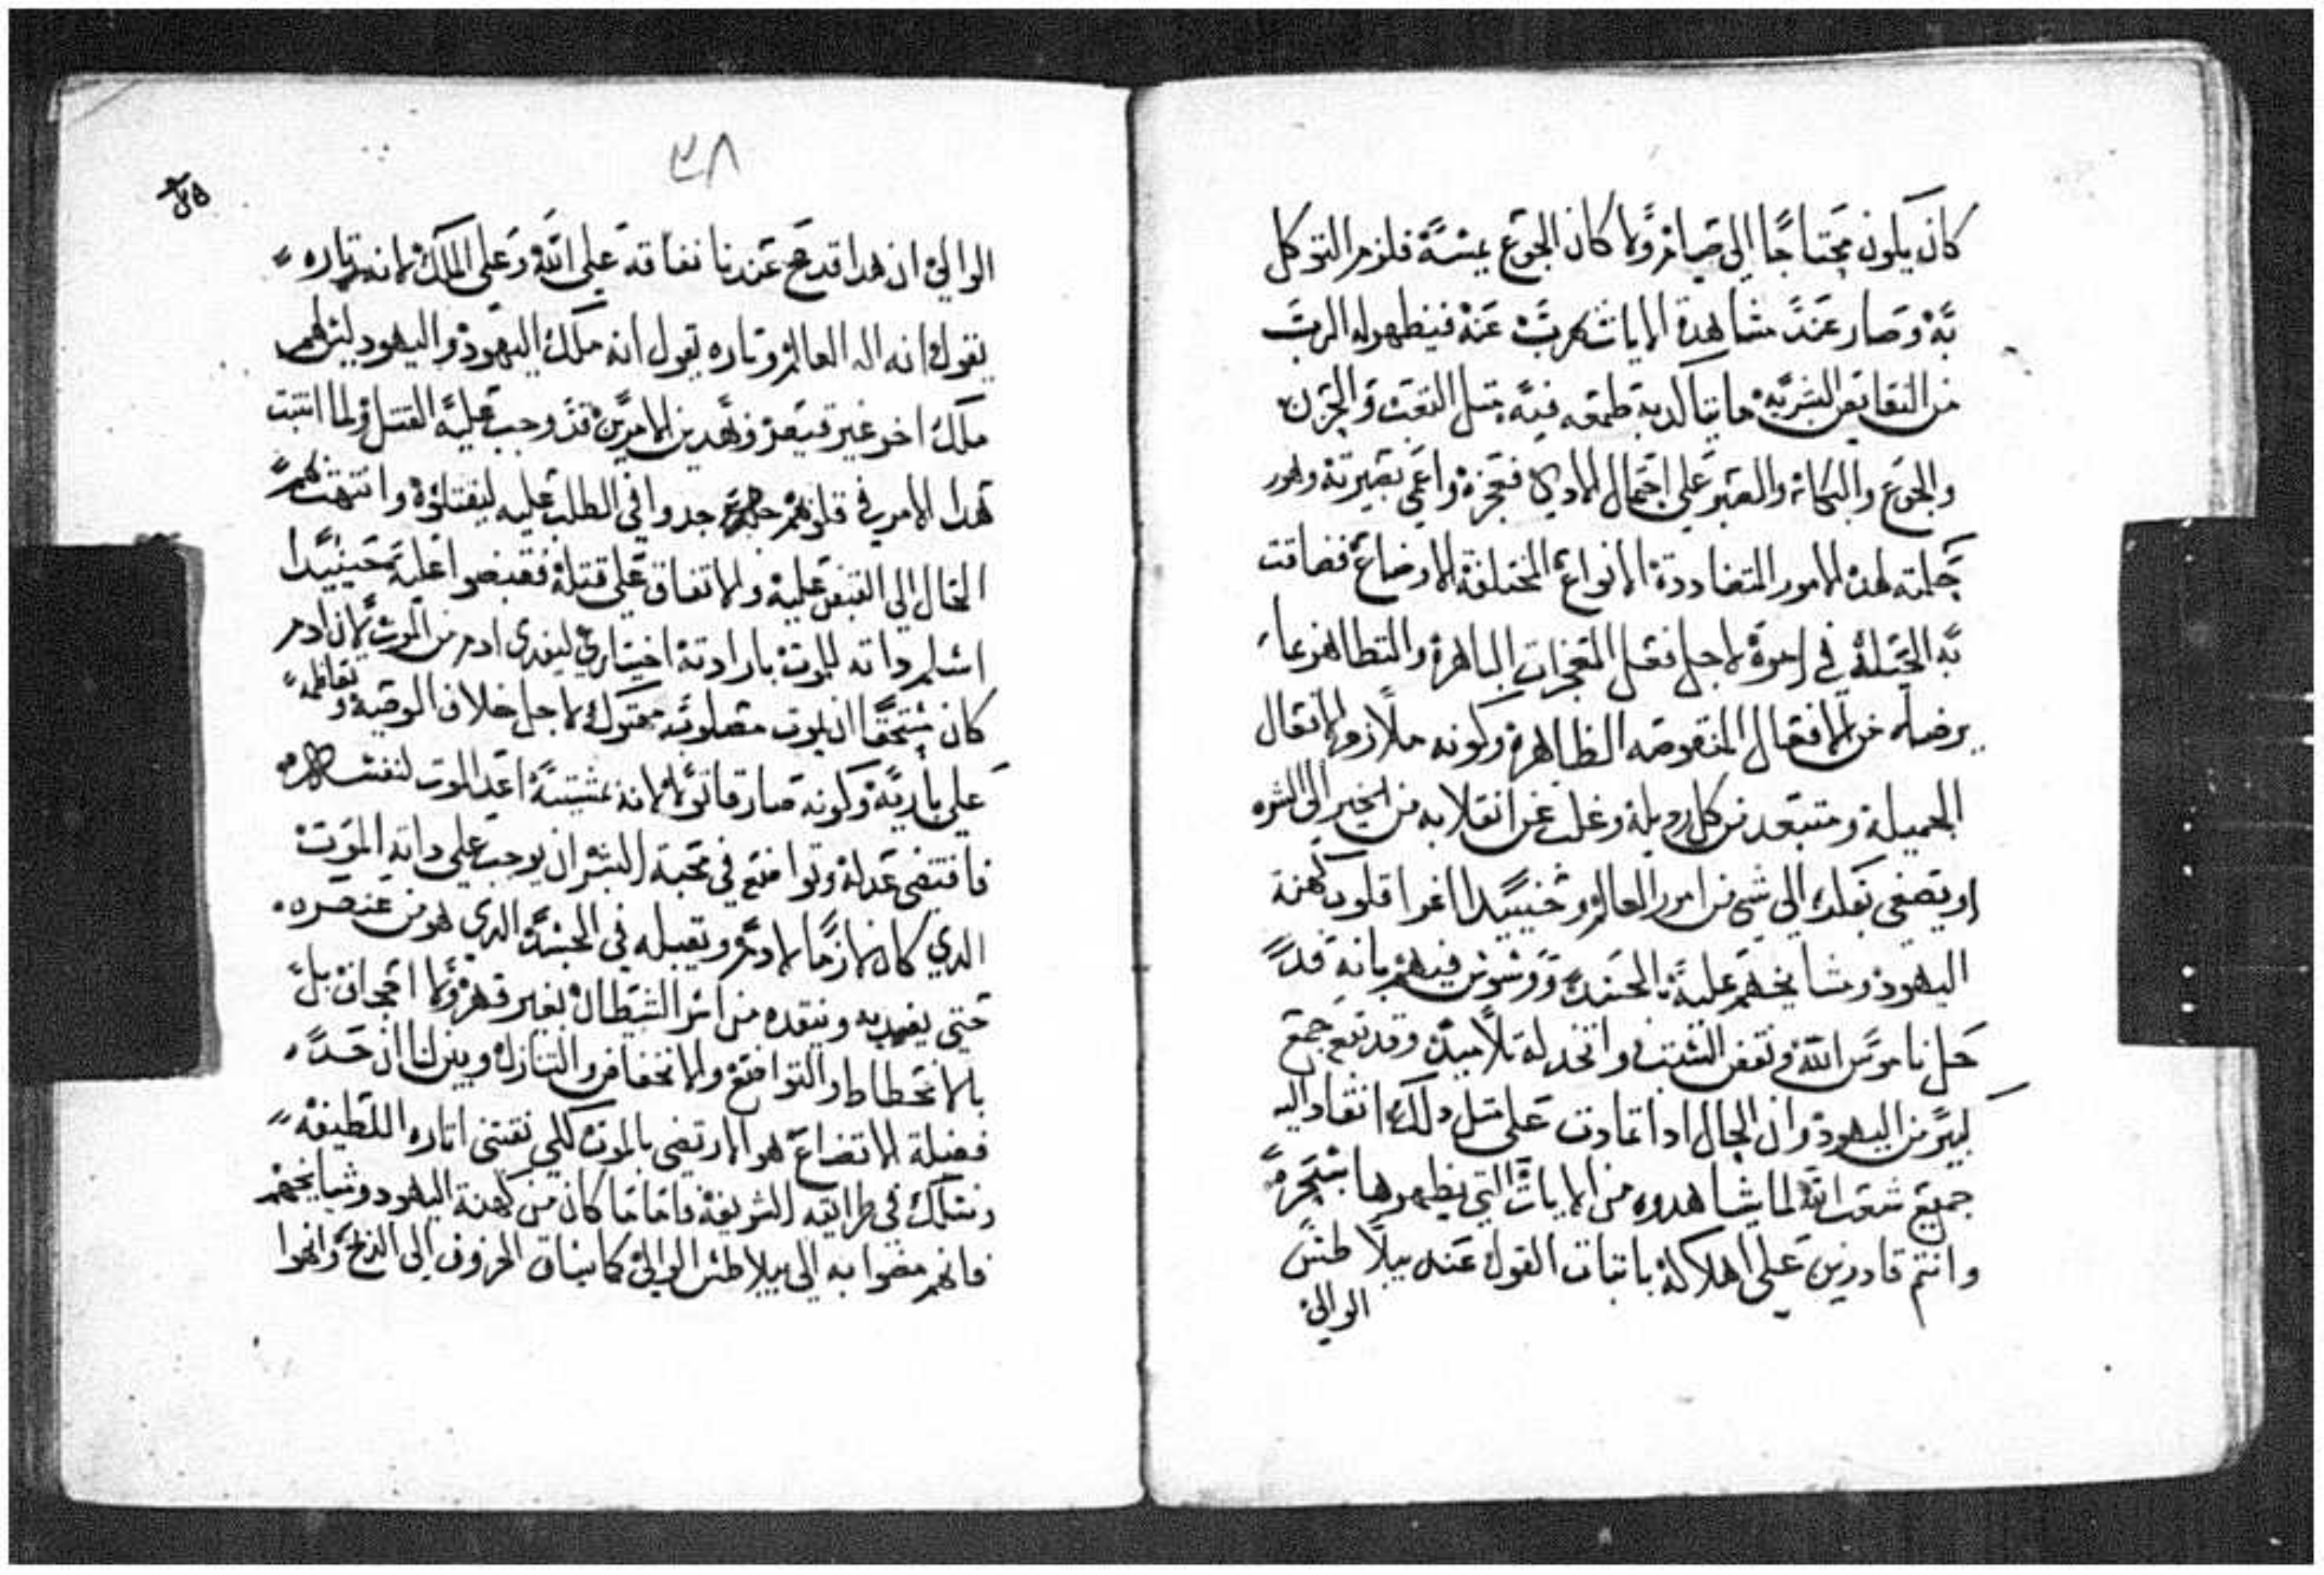 كان يكون محتاجا الي صيام ولا كان الجوع يمسه فلزم التوكل
به وصار عند مشاهدة الايات كربت عنه فيظهر له الرب
من النقايص البشريه ما يتاكد به طمعه فيه مثل التعب والحزن
والجوع والبكا والصبر علي احتمال الادي فتعجزه واعمي بصيرته وهور
جملته لهده الامور المتضاددة الانواع المختلفة الاوضاع فضاقت
به الحيلة في امره لاجل فعل المعجزات الباهرة والتظاهر عا
يرضاه من الافعال المنقوصه الظاهرة وكونه ملازم الافعال
الجميلة ومتبعد من كل رديلة وغلب عن انقلابه من الخير الي الشره
او يصغي بقلبه الي شي من امور العالم وحينيدا اغوا قلوب كهنة
اليهود ومشايخهم عليه بالحسد ووسوس فيهم بانه قد
حل ناموس الله ونقض السبت واتخد له تلاميد وقد تبع جمع
كبير من اليهود وان الحال ادا تمادت علي مثل دلك انقاد اليه
جميع شعب الله لما يشاهدوه من الايات التي يظهرها بسحره
وانتم قادرين علي اهلاكه باتبات القول عند بيلاطس
الوالي
٣٨
الوالي ان هدا قد صح عندنا نفاقه علي الله وعلي الملك لانه تاره
يقول انه اله العالم وتاره يقول انه ملك اليهود واليهود ليس لهم
ملك اخر غير قيصر وبهدين الامرين قد وجب عليه القتل ولما اتبت
هدا الامر في قلوبهم جدوا في الطلب عليه ليقتلوه وانتهت بهم
الحال الي القبض عليه والاتفاق علي قتله فقبضوا عليه حينيدا
اسلم داته للموت بارادته اختياري ليفدي ادم من الموت لان ادم
كان مستحقا ان يموت لاجل خلاف الوصية وتعاظمه
علي باريه وكونه صار قاتولا لانه بمشيته اعد الموت لنفسه
فاقتضي عدله وتواضع في محبة البشر ان يوجب علي داته الموت
الدي كان لازما لادم ويقبله في الجسد الدي هو من عنصره
حتي يفديه وينقده من اسر الشيطان بغير قهر ولا اقحاف بل
بالانحطاط والتواضع والانخفاض والتنازل ويبين لنا ان حد
فضيلة الاتضاع هو الارتضي بالموت لكي نقتفي اتاره اللطيفة
ونسلك في طرايقه الشريفة فاما ما كان من كهنة اليهود ومشايخهم
فانهم مضوا به الي بيلاطس الوالي كما يساق الخروف الي الدبح وانهوا